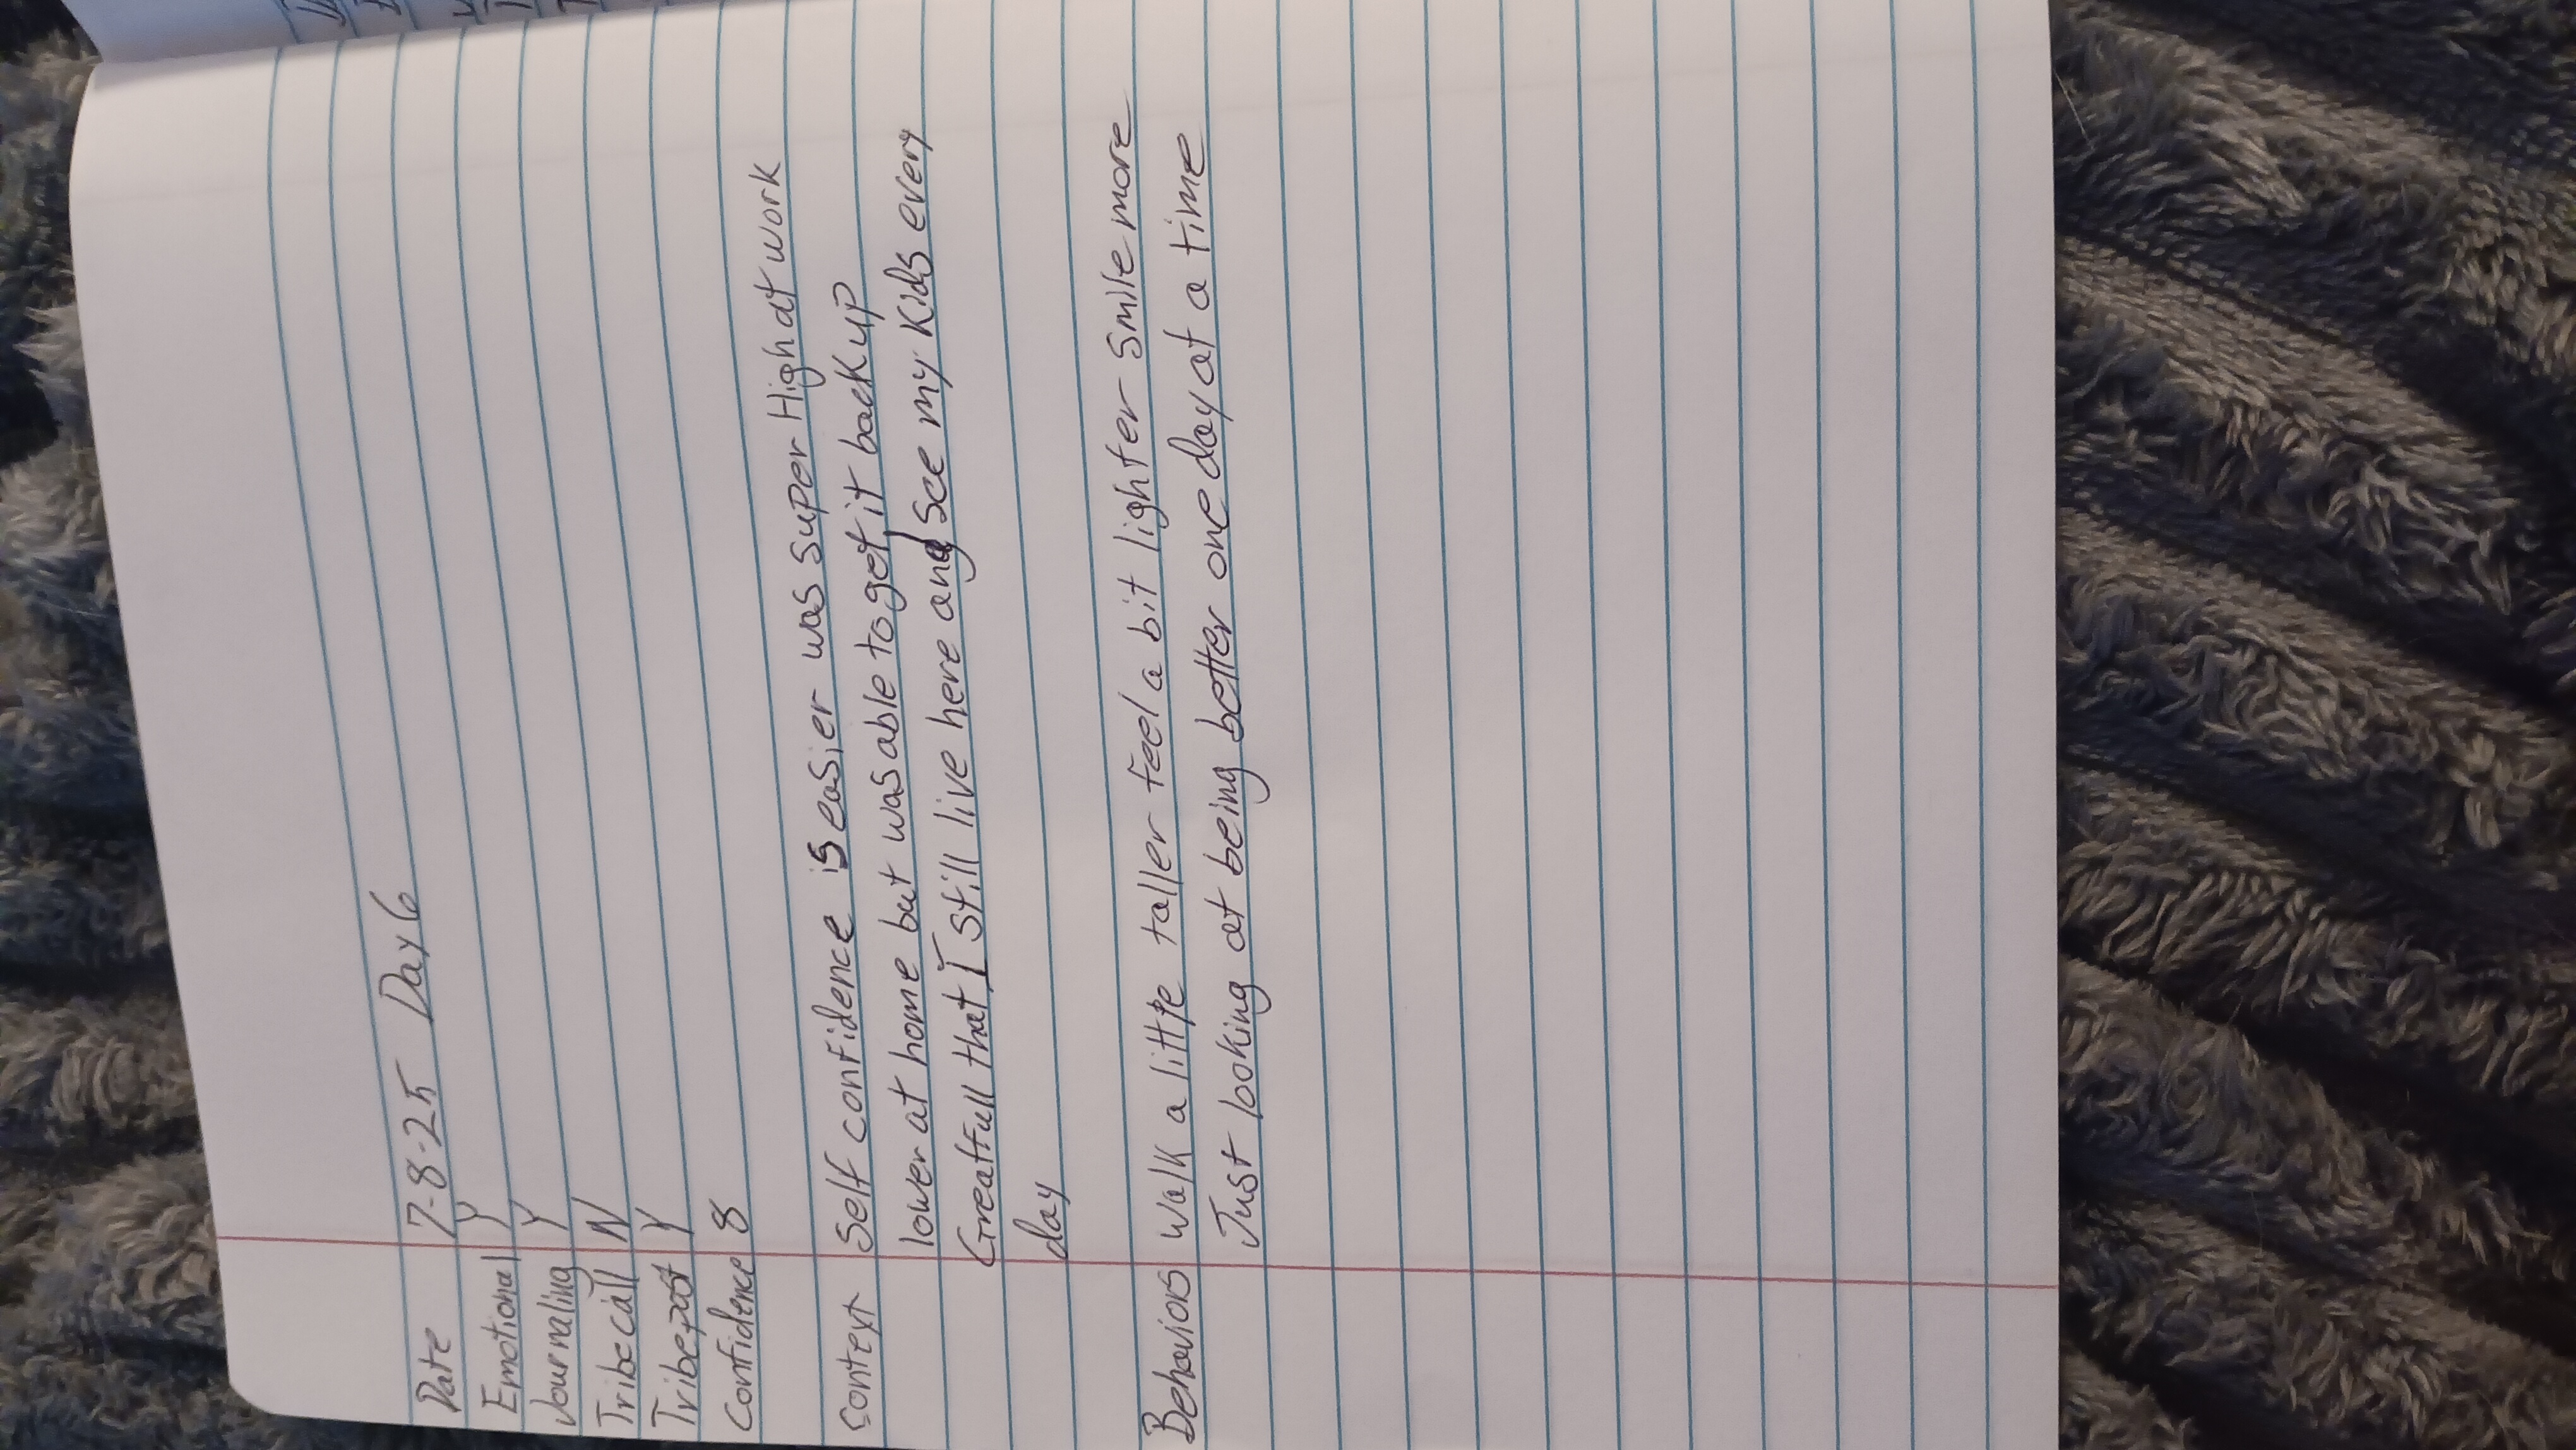 Date 7-8-25 Day 6
Emotional Y
Journaling Y
Tribe call N
Tribe post Y
Confidence 8
Context Self confidence is easier was super High at work
lower at home but was able to get it back up
Greatfull that I still live here and see my Kids every
day
Behaviors walk a little taller feel a bit lighter smile more
Just looking at being better one day at a time